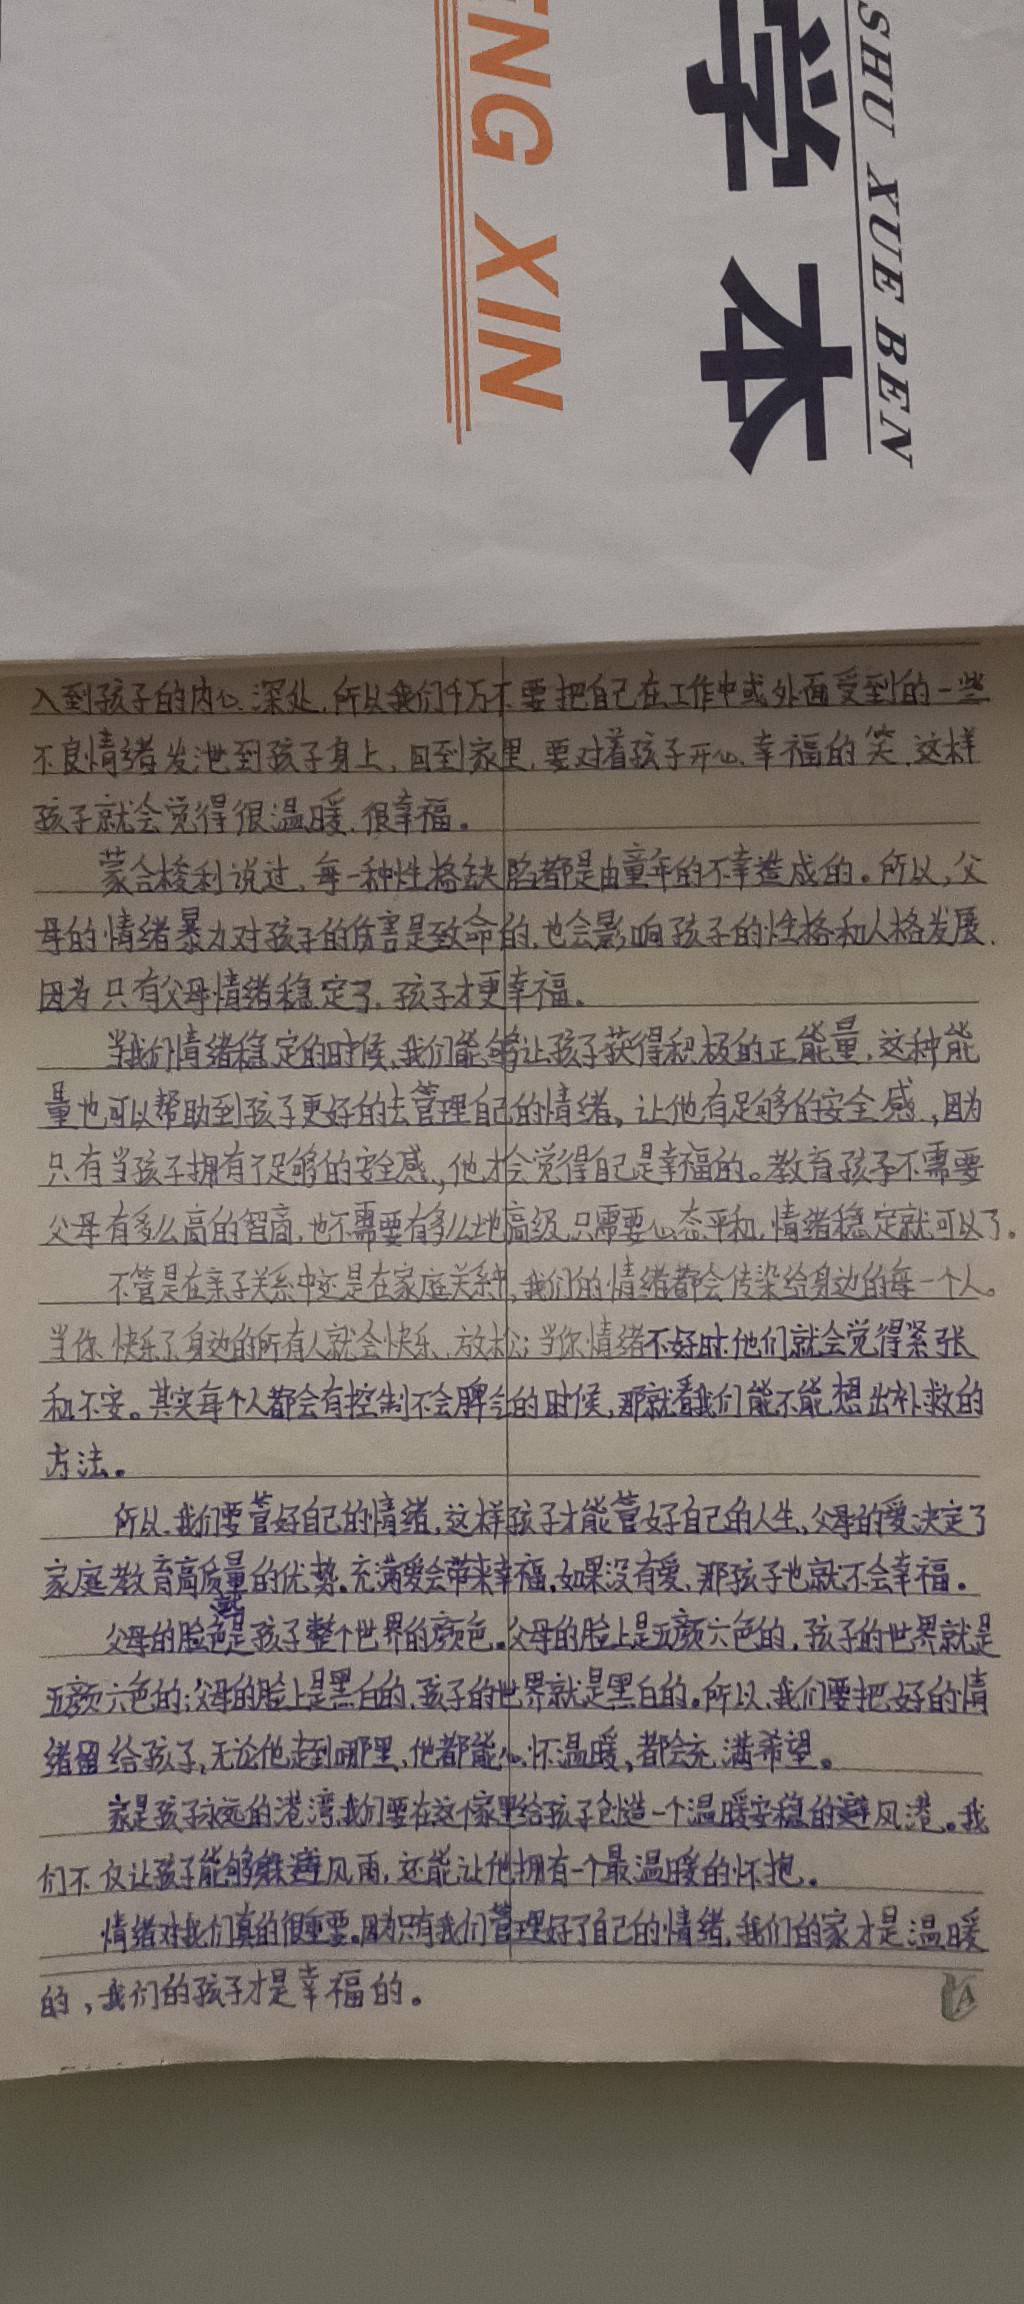 SHU XUE BEN
学本
ENG XIN
入到孩子的内心深处,所以我们千万不要把自己在工作中或外面受到的一些
不良情绪发泄到孩子身上,回到家里,要对着孩子开心、幸福的笑,这样
孩子就会觉得很温暖、很幸福。
蒙台梭利说过,每一种性格缺陷都是由童年的不幸造成的。所以,父
母的情绪暴力对孩子的伤害是致命的,也会影响孩子的性格和人格发展,
因为只有父母情绪稳定了,孩子才更幸福。
当我们情绪稳定的时候,我们能够让孩子获得积极的正能量,这种能
量也可以帮助到孩子更好的去管理自己的情绪,让他有足够的安全感,因为
只有当孩子拥有了足够的安全感,他才会觉得自己是幸福的。教育孩子不需要
父母有多么高的智商,也不需要有多么地高级,只需要心态平和,情绪稳定就可以了。
不管是在亲子关系中还是在家庭关系中,我们的情绪都会传染给身边的每一个人。
当你快乐了,身边的所有人就会快乐、放松;当你情绪不好时,他们就会觉得紧张
和不安。其实每个人都会有控制不会脾气的时候,那就看我们能不能想出补救的
方法。
所以,我们要管好自己的情绪,这样孩子才能管好自己的人生,父母的爱决定了
家庭教育高质量的优势。充满爱会带来幸福,如果没有爱,那孩子也就不会幸福。
父母的脸色就是孩子整个世界的颜色。父母的脸上是五颜六色的,孩子的世界就是
五颜六色的;父母的脸上是黑白的,孩子的世界就是黑白的。所以,我们要把好的情
绪留给孩子,无论他走到哪里,他都能心怀温暖,都会充满希望。
家是孩子永远的港湾,我们要在这个家里给孩子创造一个温暖安稳的避风港。我
们不仅让孩子能够躲避风雨,还能让他拥有一个最温暖的怀抱。
情绪对我们真的很重要。因为只有我们管理好了自己的情绪,我们的家才是温暖
的,我们的孩子才是幸福的。